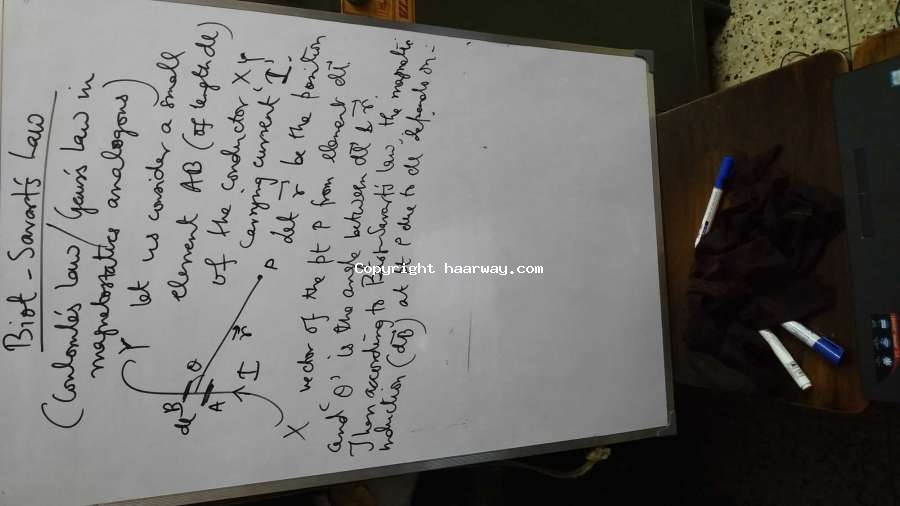 Biot - Savart's Law
(Coulomb's Law / Gauss Law in
magnetostatics analogous)
Let us consider a small
element AB (of length dl)
of the conductor XY
carrying current 'I'.
Let r be the position
vector of the pt P from element dl
and 'θ' is the angle between dl & r.
Then according to Biot-Savart's law the magnetic
induction (dB) at pt P due to dl depends on:-
Y
dl B θ P
A r
I
X
Copyright haarway.com